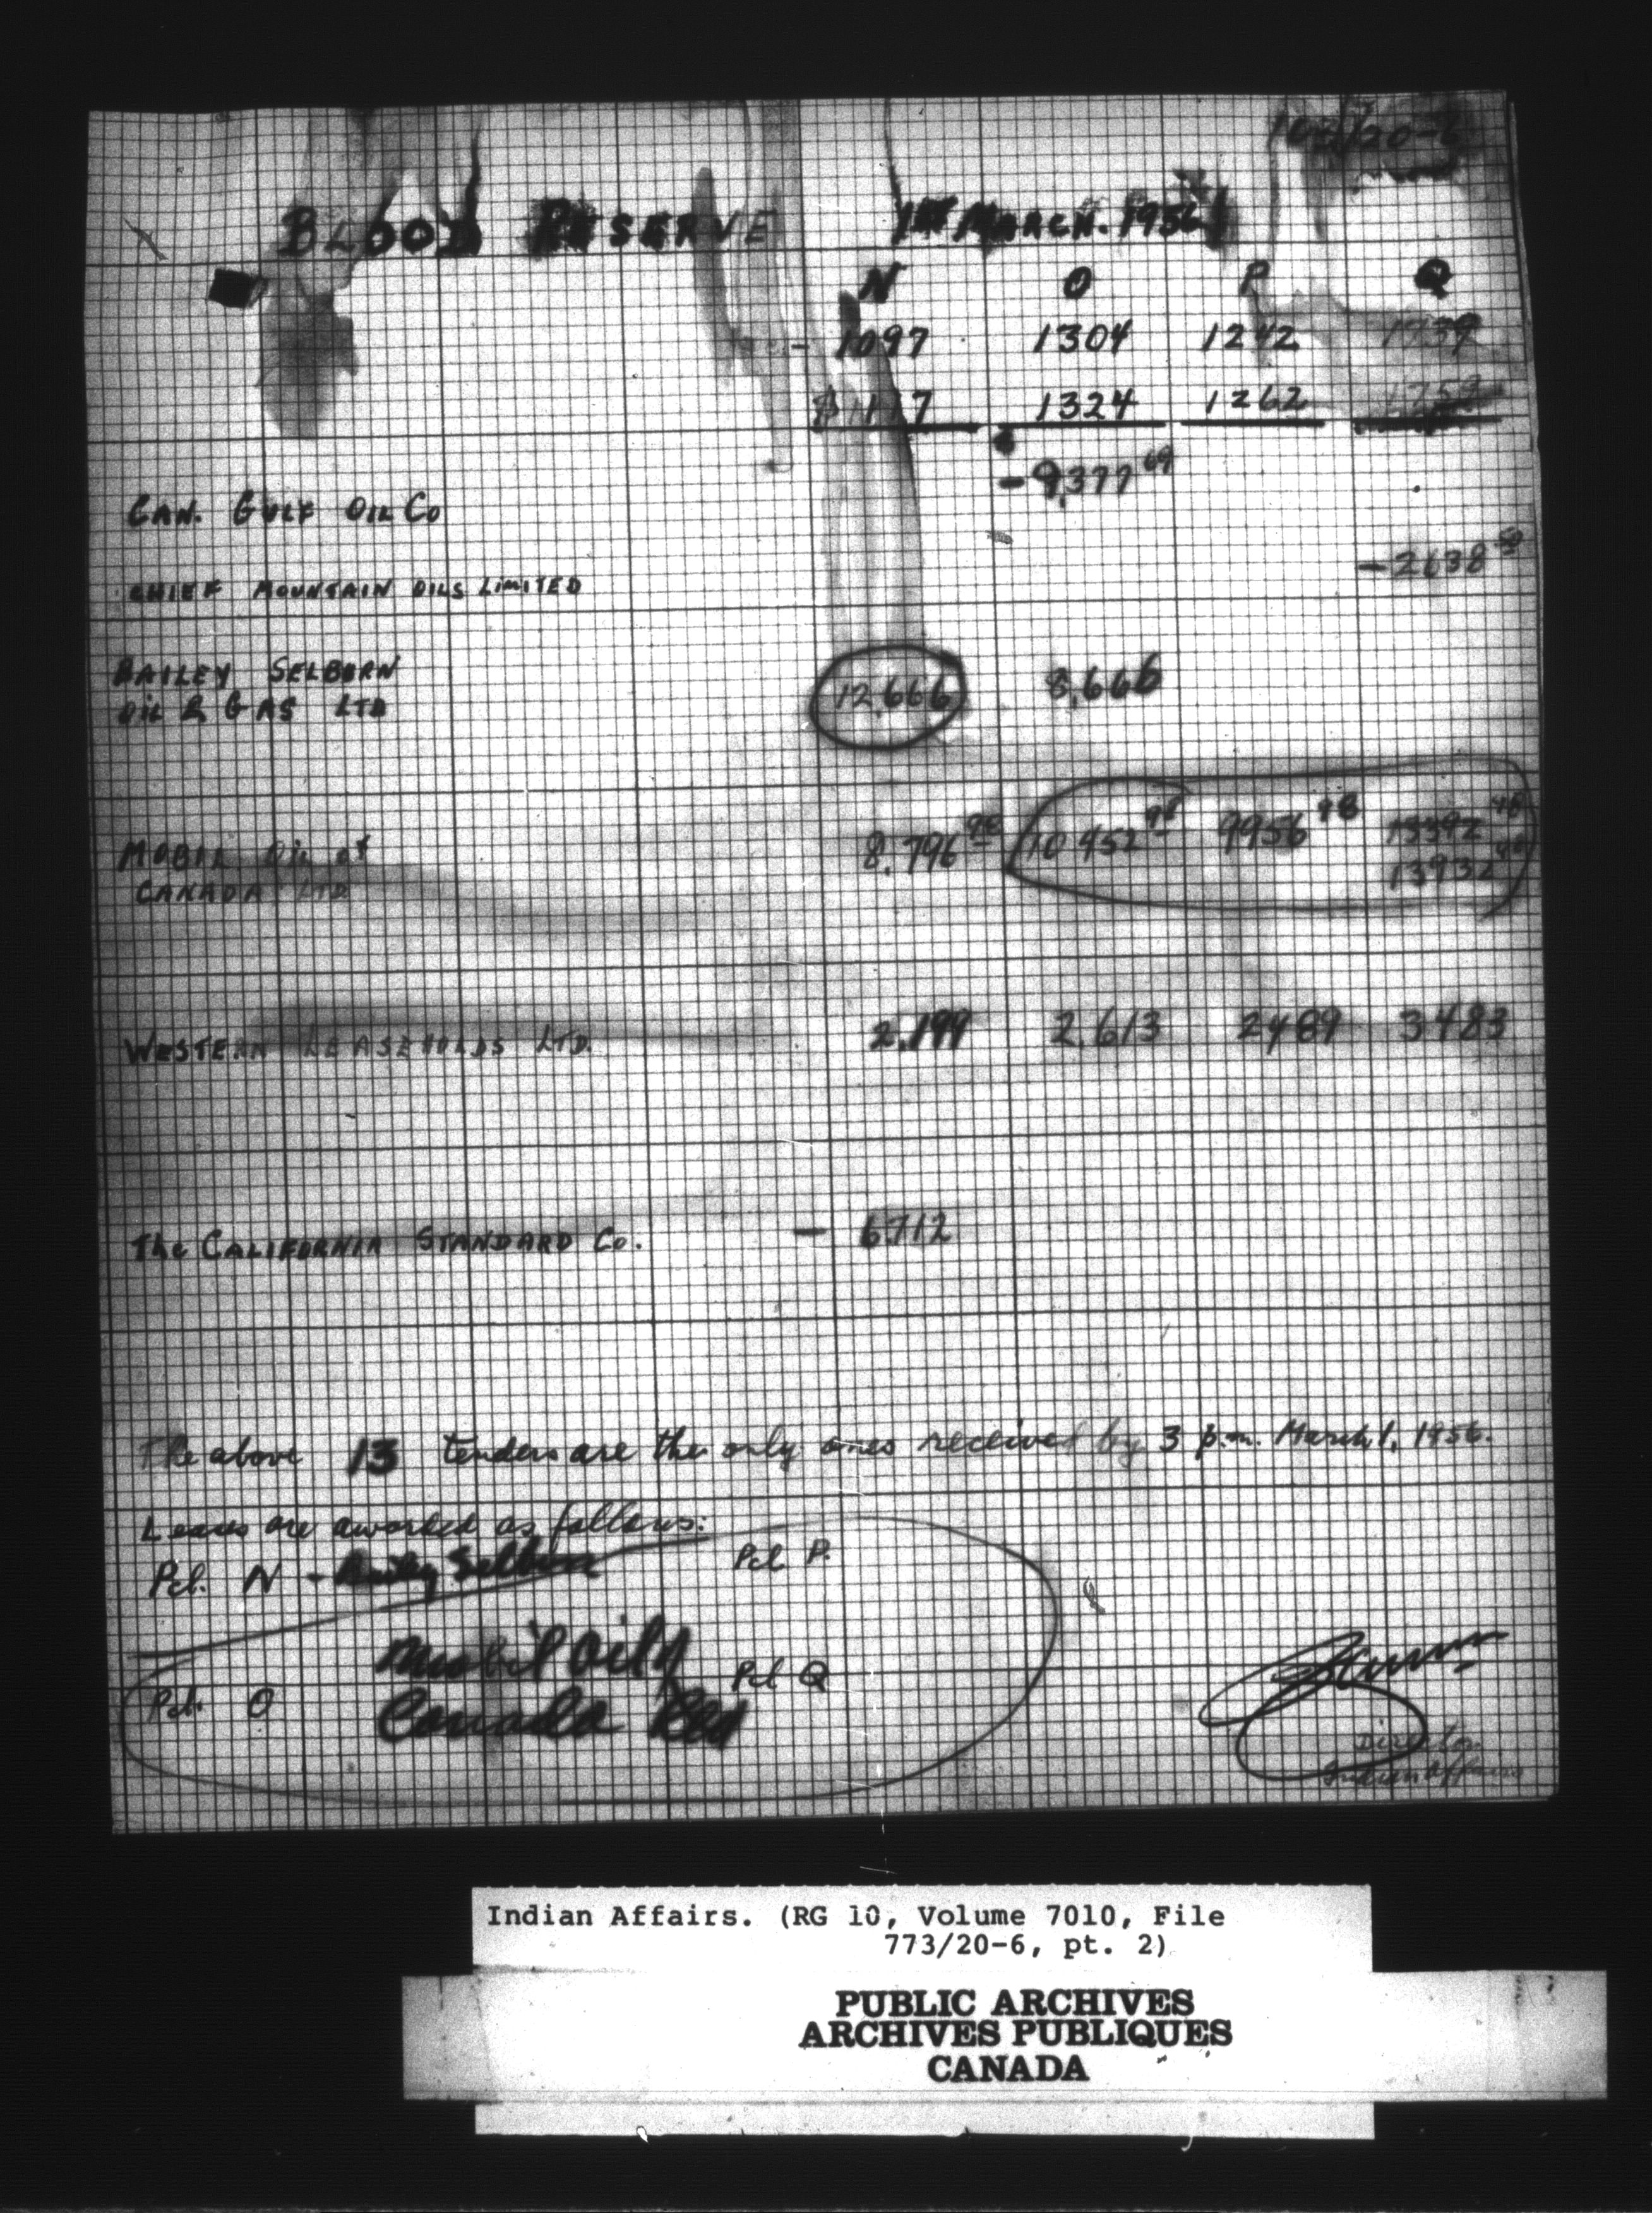 BLOOD RESERVE 1st MARCH. 1956
N O P Q
- 1097 1304 1242 1739
$1117 1324 1262 1759
CAN. GULF OIL CO - 9,377 69
CHIEF MOUNTAIN OILS LIMITED - 2638 50
BAILEY SELBURN
OIL & GAS LTD 12,666 8,666
MOBIL OIL of 8,796 98 10 452 98 9956 98 13392 46
CANADA LTD 13932 46
WESTERN LEASEHOLDS LTD. 2,199 2,613 2489 3483
The CALIFORNIA STANDARD CO. - 6712
The above 13 tenders are the only ones received by 3 p.m. March 1, 1956.
Leases are awarded as follows:
Pcl. N - Bailey Selburn Pcl P.
Mobil Oil of
Pcl. O Pcl Q
Canada
Director
Indian Affairs
Indian Affairs. (RG 10, Volume 7010, File
773/20-6, pt. 2)
PUBLIC ARCHIVES
ARCHIVES PUBLIQUES
CANADA